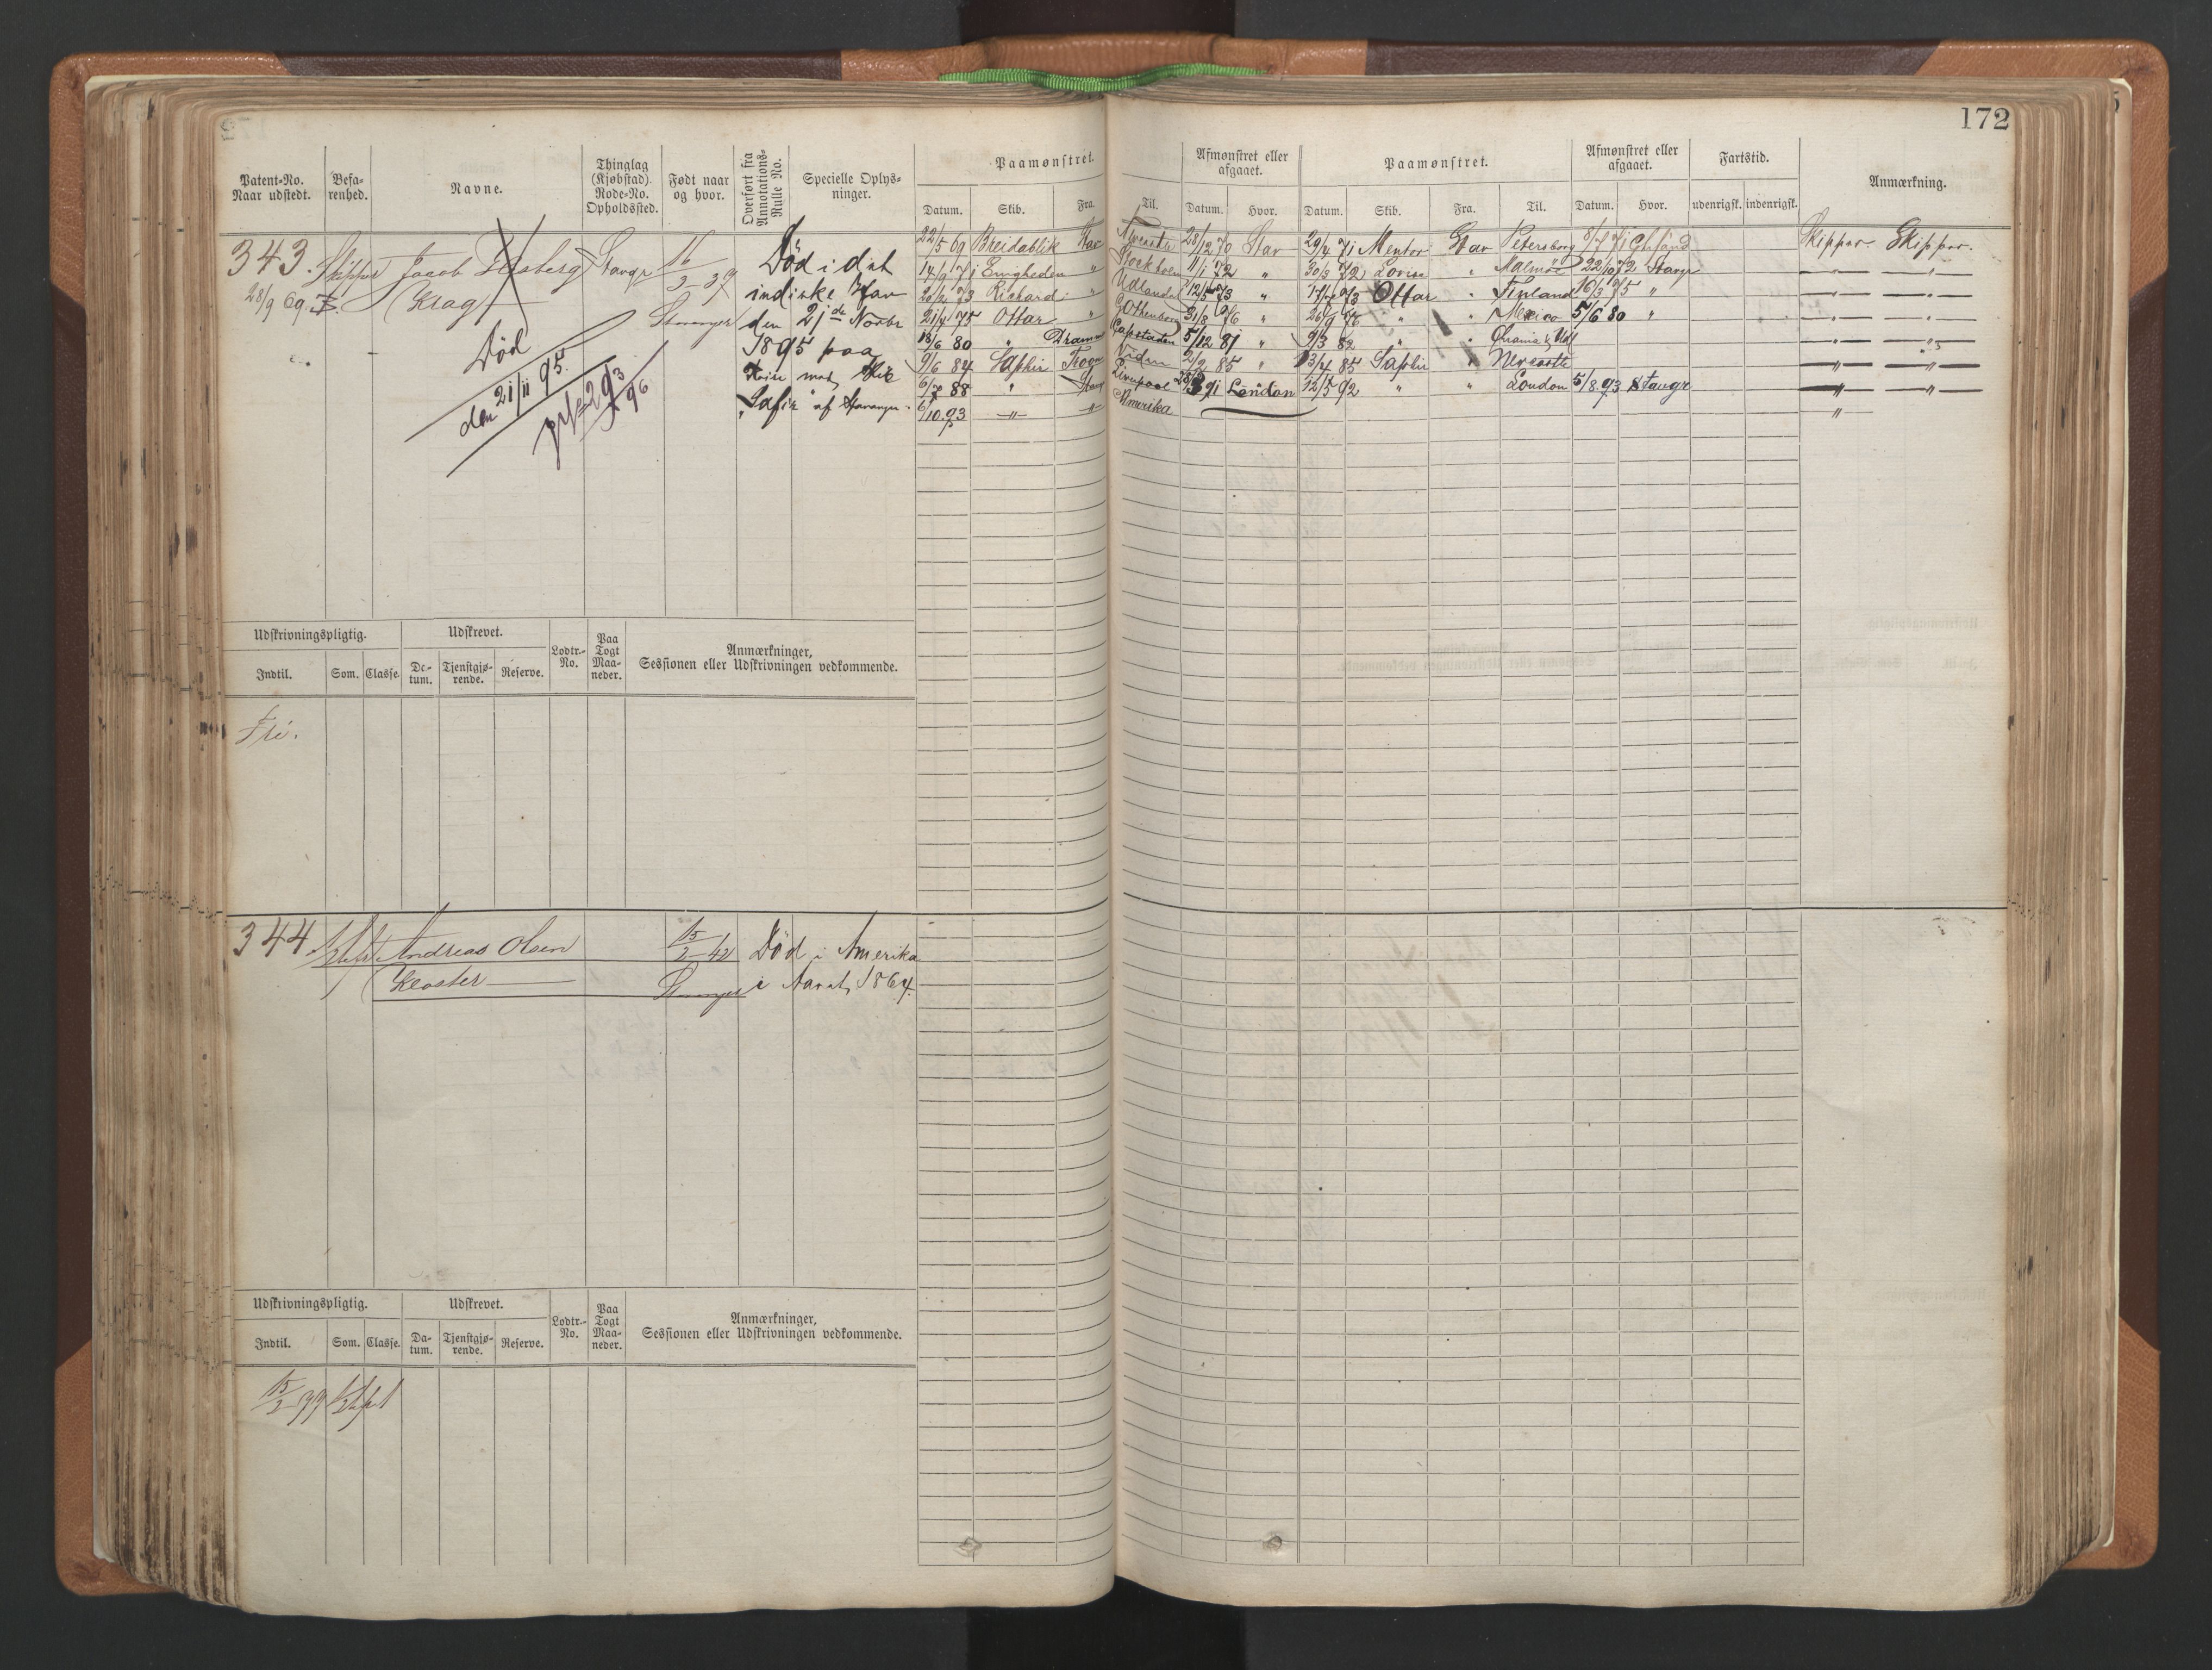 172
Patent-No. Naar udstedt.
Befa-renhed.
Navne.
Thinglag (Kjøbstad). Rode-No. Opholdssted.
Født naar og hvor.
Overført fra Annotations-Rulle No.
Specielle Oplys-ninger.
Paamønstret.
Datum. Skib. Fra. Til.
Afmønstret eller afgaaet.
Datum. Hvor.
Paamønstret.
Datum. Skib. Fra. Til.
Afmønstret eller afgaaet.
Datum. Hvor.
Fartstid.
udenrigsk. indenrigsk.
Anmærkning.
343. Skipper Jacob
28/9 69. Krag
Stavgr 16/3 37
Stavanger
Død
den 21/11 95.
Død i det
indiske Hav
den 21de Novbr
1895 paa
Reise med Skib
"Safir" af Stavanger
22/5 69 Breidablik Stav 28/12 70 Stav 29/4 71 Mentor Stav Petersborg 8/7 71 Skipper. Skipper.
14/9 71 Enigheden " Stockholm 11/1 72 " 30/3 72 Lovise " Malmöe 22/10 72 Stavgr
Richard " Udlandet 73 " 73 Ottar " Finland 16/3 75 "
21/4 75 Ottar " Gothenborg 31/8 76 " 26/9 76 " " Mexico 5/6 80 "
13/6 80 " Drammen Capstaden 5/12 81 " 9/3 82 "
9/6 84 Saphir 85 " 13/4 85 Saphir " Newcastle
6/7 88 " Stavgr Liverpool 91 London 12/5 92 " " London 5/8. 93 Stavgr
6/10. 93 —"— —"— Amerika
Udskrivningspligtig.
Indtil. Som. Classe.
Udskrevet.
Da-tum. Tjenstgjø-rende. Reserve.
Lodtr.-No.
Paa Togt Maa-neder.
Anmærkninger, Sessionen eller Udskrivningen vedkommende.
Fri.
344 Andreas Olsen 15/2 42 Død i Amerika
Kloster Stavanger i Aaret 1864.
Udskrivningspligtig.
Indtil. Som. Classe.
Udskrevet.
Da-tum. Tjenstgjø-rende. Reserve.
Lodtr.-No.
Paa Togt Maa-neder.
Anmærkninger, Sessionen eller Udskrivningen vedkommende.
15/2